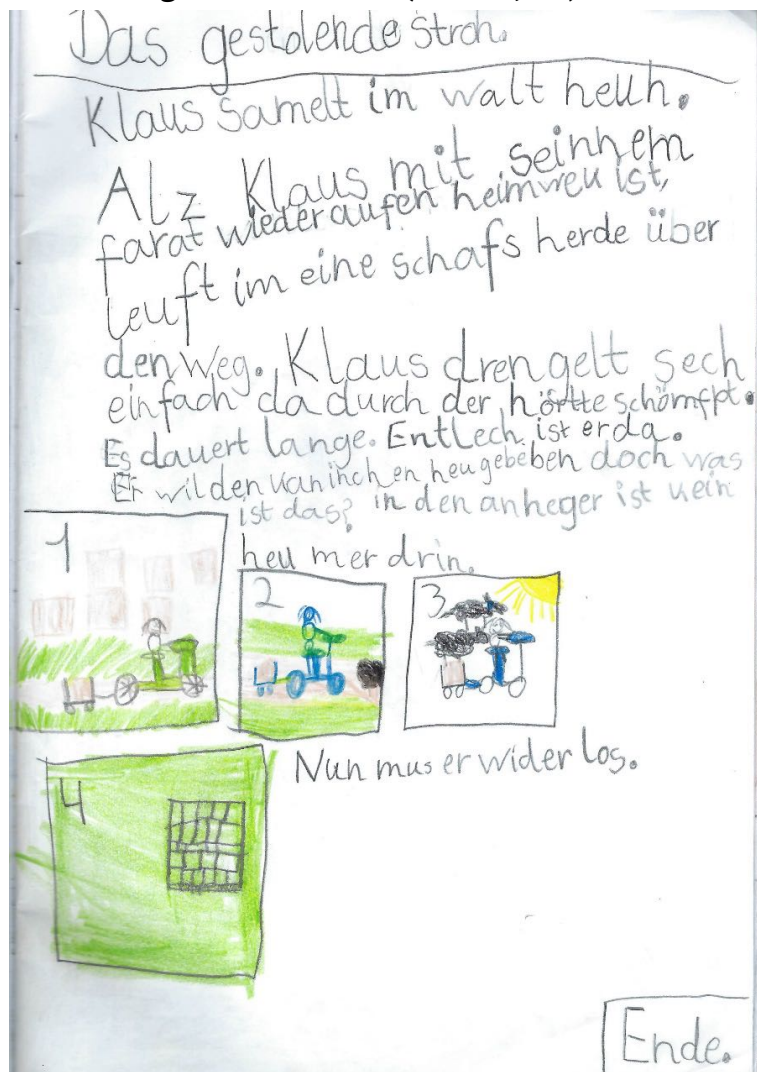 Das gestolende Stroh.
Klaus samelt im walt heuh.
Alz Klaus mit seinhem
farat wieder aufen heimweu ist,
leuft im eine schafs herde über
den weg. Klaus drengelt sech
einfach da durch der hörtte schömfpt.
Es dauert lange. Entlech ist er da.
Er wil den kaninchen heu gebeben doch was
ist das? in den anheger ist kein
heu mer drin.
1
2
3
Nun mus er wider los.
4
Ende.